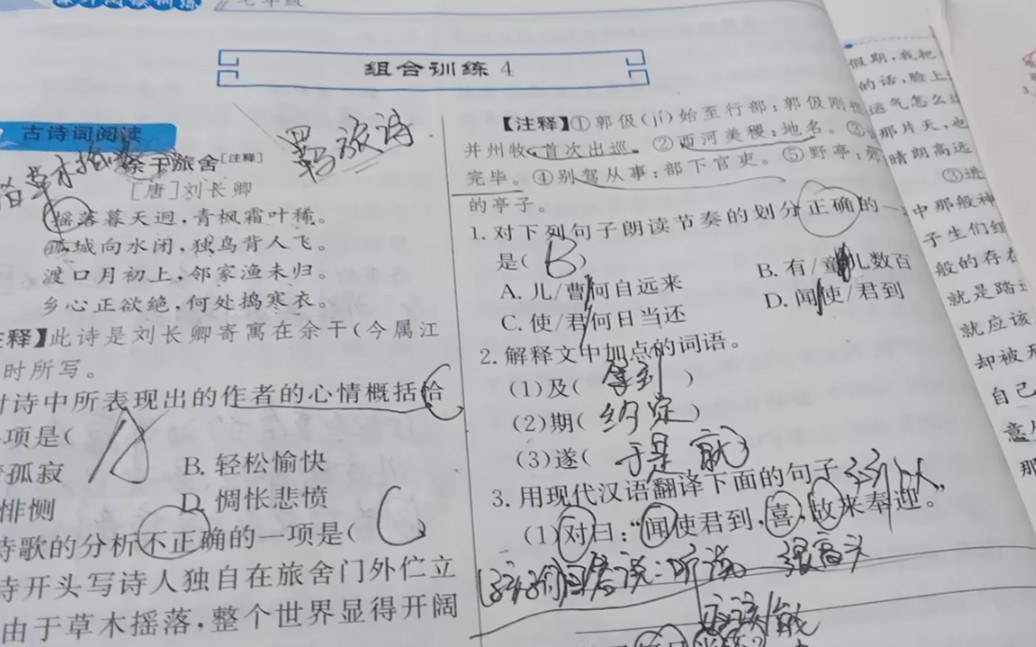 课外阅读训练 七年级
组合训练 4
古诗词阅读
羁旅诗
余干旅舍[注释]
[唐]刘长卿
摇落暮天迥,青枫霜叶稀。
孤城向水闭,独鸟背人飞。
渡口月初上,邻家渔未归。
乡心正欲绝,何处捣寒衣。
注释】此诗是刘长卿寄寓在余干(今属江
时所写。
对诗中所表现出的作者的心情概括恰
一项是( A
孤寂 B. 轻松愉快
悱恻 D. 惆怅悲愤
诗歌的分析不正确的一项是( C )
诗开头写诗人独自在旅舍门外伫立
由于草木摇落,整个世界显得开阔
【注释】①郭伋(jí)始至行部:郭伋刚
并州牧,首次出巡。②西河美稷:地名。③
完毕。④别驾从事:部下官吏。⑤野亭:
的亭子。
1. 对下列句子朗读节奏的划分正确的一
是( B )
A. 儿/曹何自远来 B. 有/童儿数百
C. 使/君何日当还 D. 闻使/君到
2. 解释文中加点的词语。
(1)及( 拿到 )
(2)期( 约定 )
(3)遂( 于是 就 )
3. 用现代汉语翻译下面的句子
(1)对曰:“闻使君到,喜,故来奉迎。
回答说:听说 很高兴
假期,我把
的话,脸上
运气怎么
那片天,也
晴朗高远
③进
中那般神
子生们组
般的存在
就是踏
就应该
却被
自己
意
那